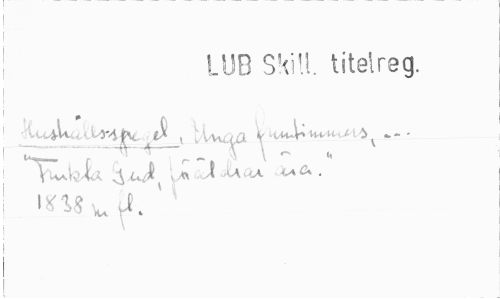 LUB Skill. titelreg.
Hushålls-spegel, Unga fruntimmers, ...
"Frukta Gud, föräldrar ära."
1838 m fl.